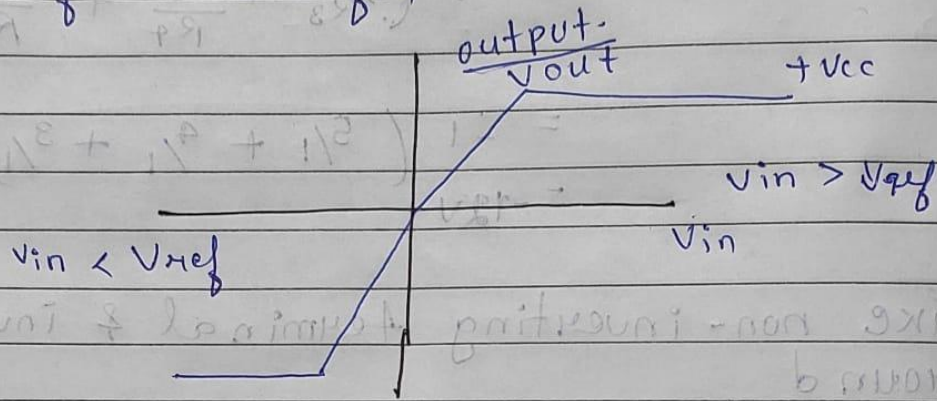 output.
Vout
+ Vcc
Vin > Vref
Vin
Vin < Vref